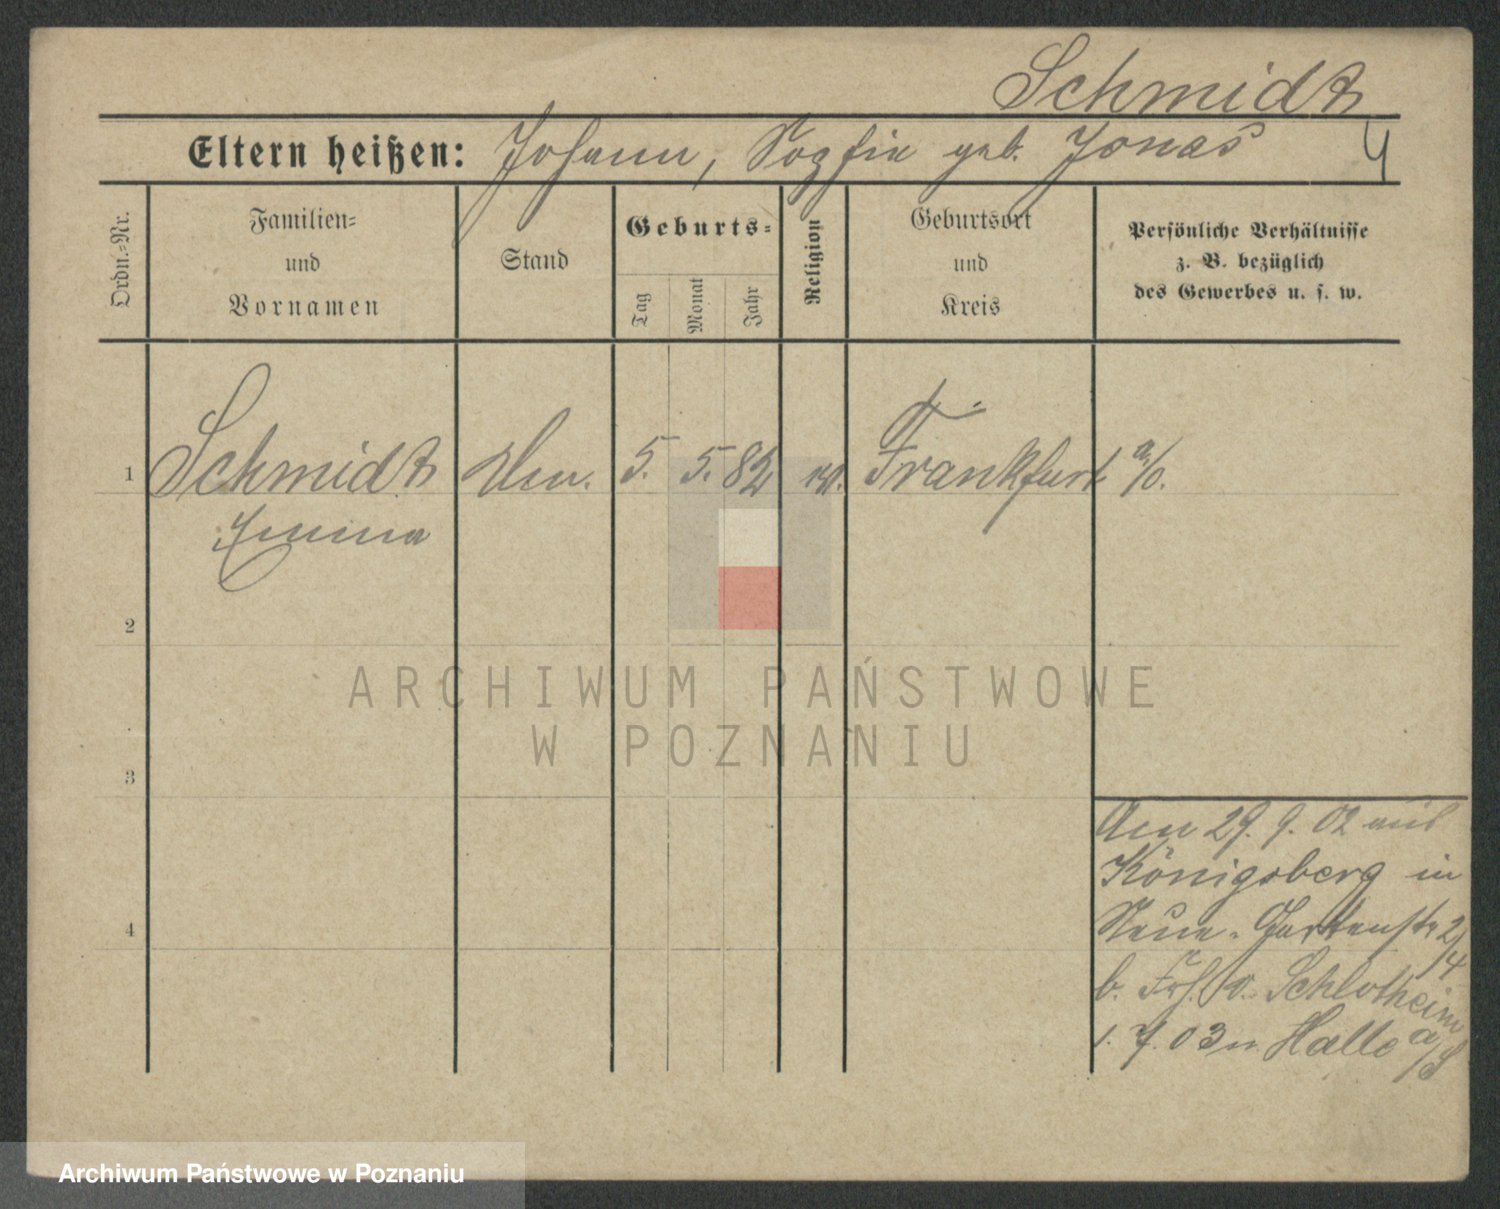 Schmidt
Eltern heißen: Johann, Sophie geb. Jonas
4
Ordn.-Nr.
Familien-
und
Vornamen
Stand
Geburts-
Tag
Monat
Jahr
Religion
Geburtsort
und
Kreis
Persönliche Verhältnisse
z. B. bezüglich
des Gewerbes u. s. w.
1 Schmidt 5. 5. 82 ev. Frankfurt a/O.
Emma
2
ARCHIWUM PAŃSTWOWE
W POZNANIU
3
29. 9. 02 aus
Königsberg in
Neue-Gartenstr 2/4
b. Frh. v. Schlotheim
1. 7. 03 n. Halle a/S
4
Archiwum Państwowe w Poznaniu